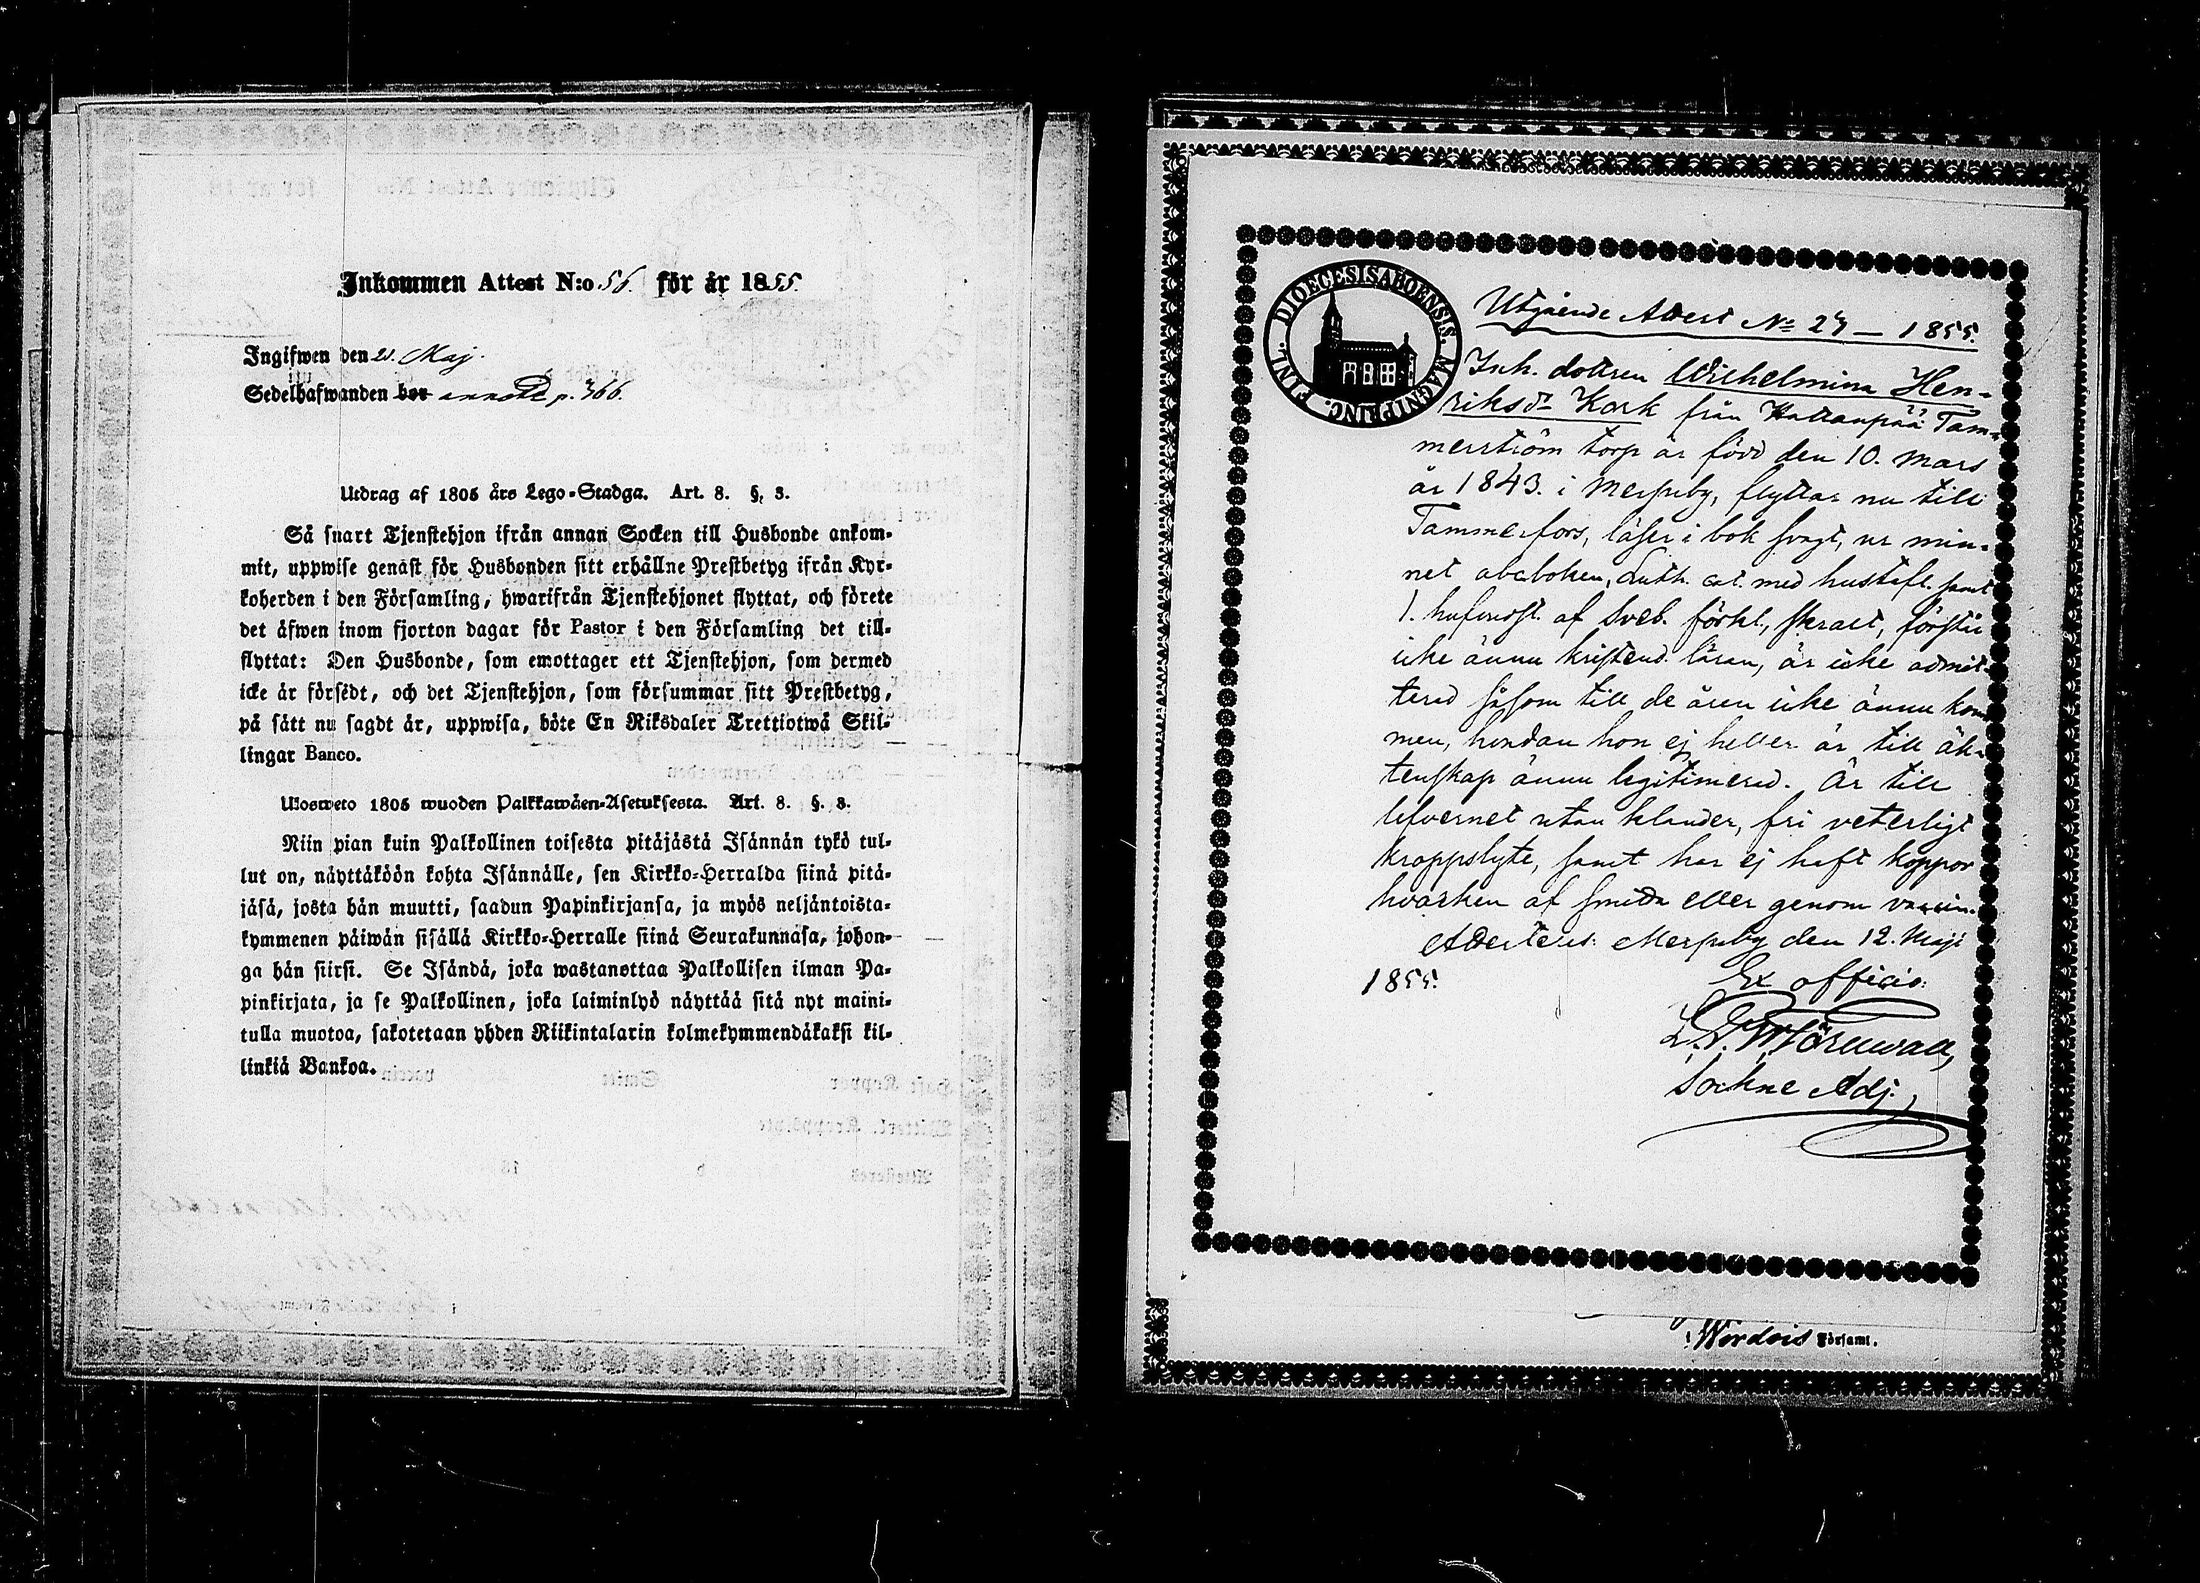 Inkommen Attest N:o 56. för år 1855.
Ingifwen den 21. Maj.
Sedelhafwanden bor annotd p. 366.
Utdrag af 1805 års Lego-Stadga. Art. 8. §. 3.
Så snart Tjenstehjon ifrån annan Socken till Husbonde ankom-
mit, uppwise genast för Husbonden sitt erhållne Prestbetyg ifrån Kyr-
koherden i den Församling, hwarifrån Tjenstehjonet flyttat, och förete
det äfwen inom fjorton dagar för Pastor i den Församling det till-
flyttat: Den Husbonde, som emottager ett Tjenstehjon, som dermed
icke är försedt, och det Tjenstehjon, som försummar sitt Prestbetyg,
på sätt nu sagdt är, uppwisa, böte En Riksdaler Trettiotwå Skil-
lingar Banco.
Ulosweto 1805 wuoden Palkkawäen-Asetuksesta. Art. 8. §. 3.
Niin pian kuin Palkollinen toisesta pitäjästä Isännän tykö tul-
lut on, näyttäköön kohta Isännälle, sen Kirkko-Herralda siinä pitä-
jäsä, josta hän muutti, saadun Papinkirjansa, ja myös neljäntoista-
kymmenen päiwän sisällä Kirkko-Herralle siinä Seurakunnasa, johon-
ga hän siirsi. Se Isändä, joka wastanottaa Palkollisen ilman Pa-
pinkirjata, ja se Palkollinen, joka laiminlyö näyttää sitä nyt maini-
tulla muotoa, sakotetaan yhden Riikintalarin kolmekymmendäkaksi kil-
linkiä Bankoa.
DIOECESIS ABOENSIS. MAGNI PRINC. FINL.
Utgående Attest No 27 — 1855.
Inh. dottren Wilhelmina Hen-
riksdr Kork från Hattanpää Tam-
merström torp är född den 10. Mars
år 1843. i Messuby, flyttar nu till
Tammerfors, läser i bok svagt, ur min-
net abcboken, Luth. cat. med hustafl. samt
1. hufvudst. af Sveb. förkl., skralt, förstår
icke ännu kristend. läran, är icke admit-
terad såsom till de åren icke ännu kom-
men, hvadan hon ej heller är till äk-
tenskap ännu legitimerad. Är till
lefvernet utan klander, fri veterligt
kroppslyte, samt har ej haft koppor
hvarken af smitta eller genom vaccin.
Attesteras: Messuby den 12. Maji
1855. Ex officio:
Sockne Adj.
i Wordois Församl.